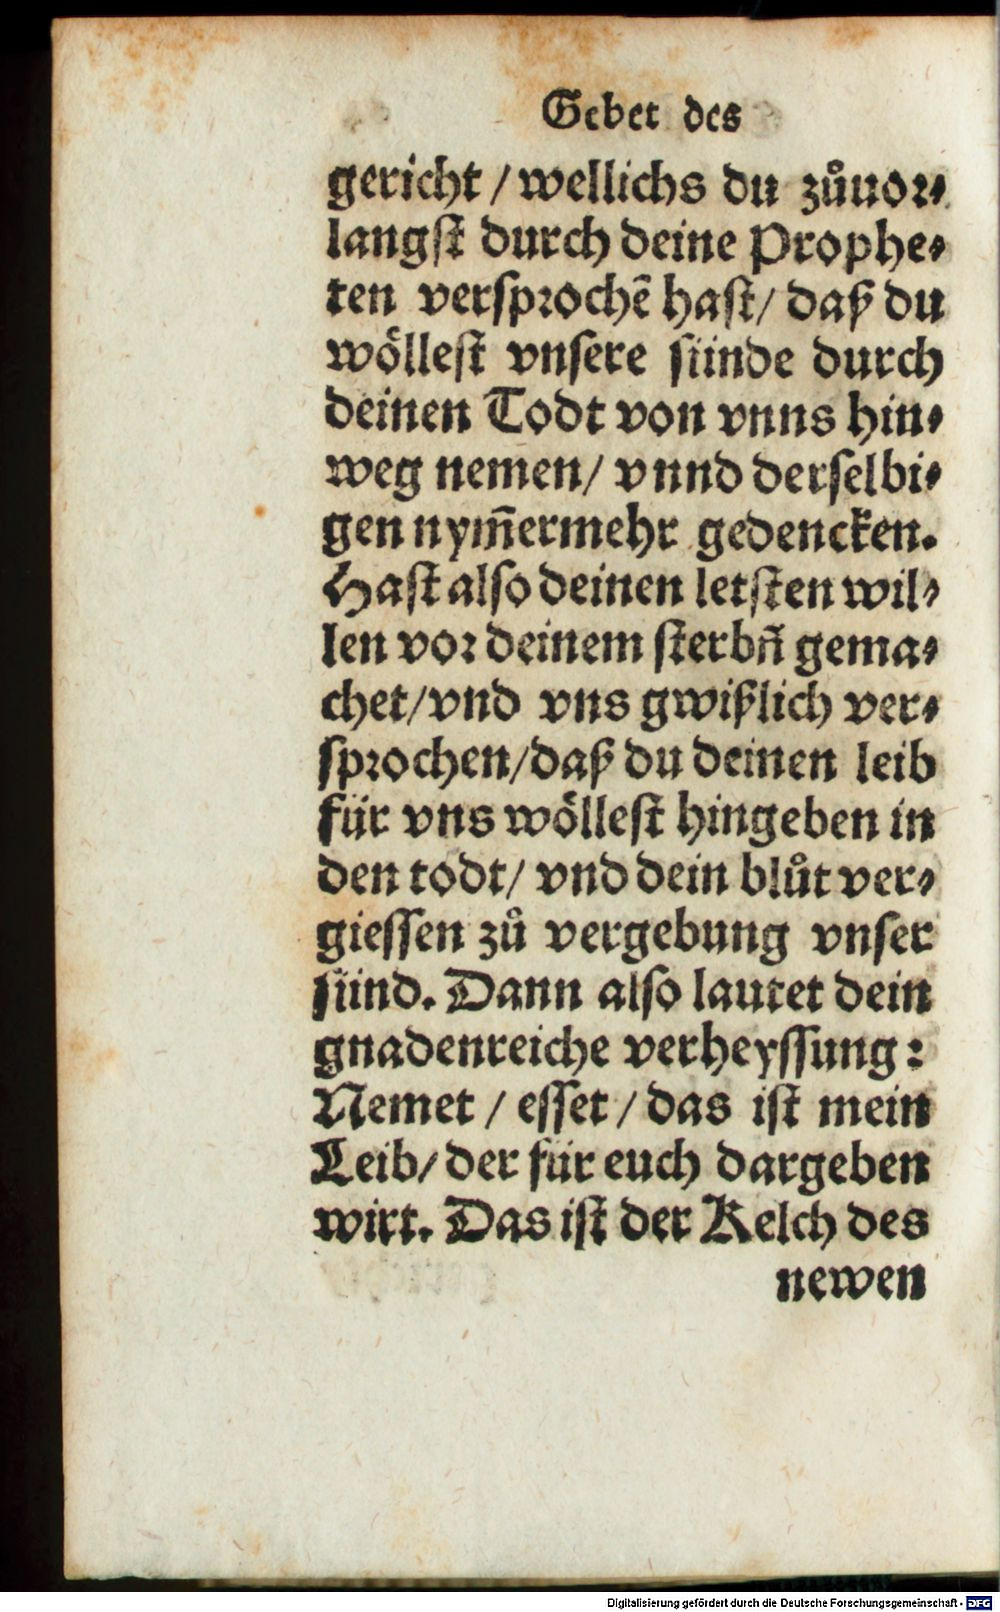 Gebet des
gericht / wellichs du zůuor⸗
langst durch deine Prophe⸗
ten versprochẽ hast / daß du
wöllest vnsere sünde durch
deinen Todt von vnns hin⸗
weg nemen / vnnd derselbi⸗
gen nym̃ermehr gedencken.
Hast also deinen letsten wil⸗
len vor deinem sterbñ gema⸗
chet / vnd vns gwißlich ver⸗
sprochen / daß du deinen leib
für vns wöllest hingeben in
den todt / vnd dein blůt ver⸗
giessen zů vergebung vnser
sünd. Dann also lautet dein
gnadenreiche verheyssung :
Nemet / esset / das ist mein
Leib / der für euch dargeben
wirt. Das ist der Kelch des
newen
Digitalisierung gefördert durch die Deutsche Forschungsgemeinschaft - DFG